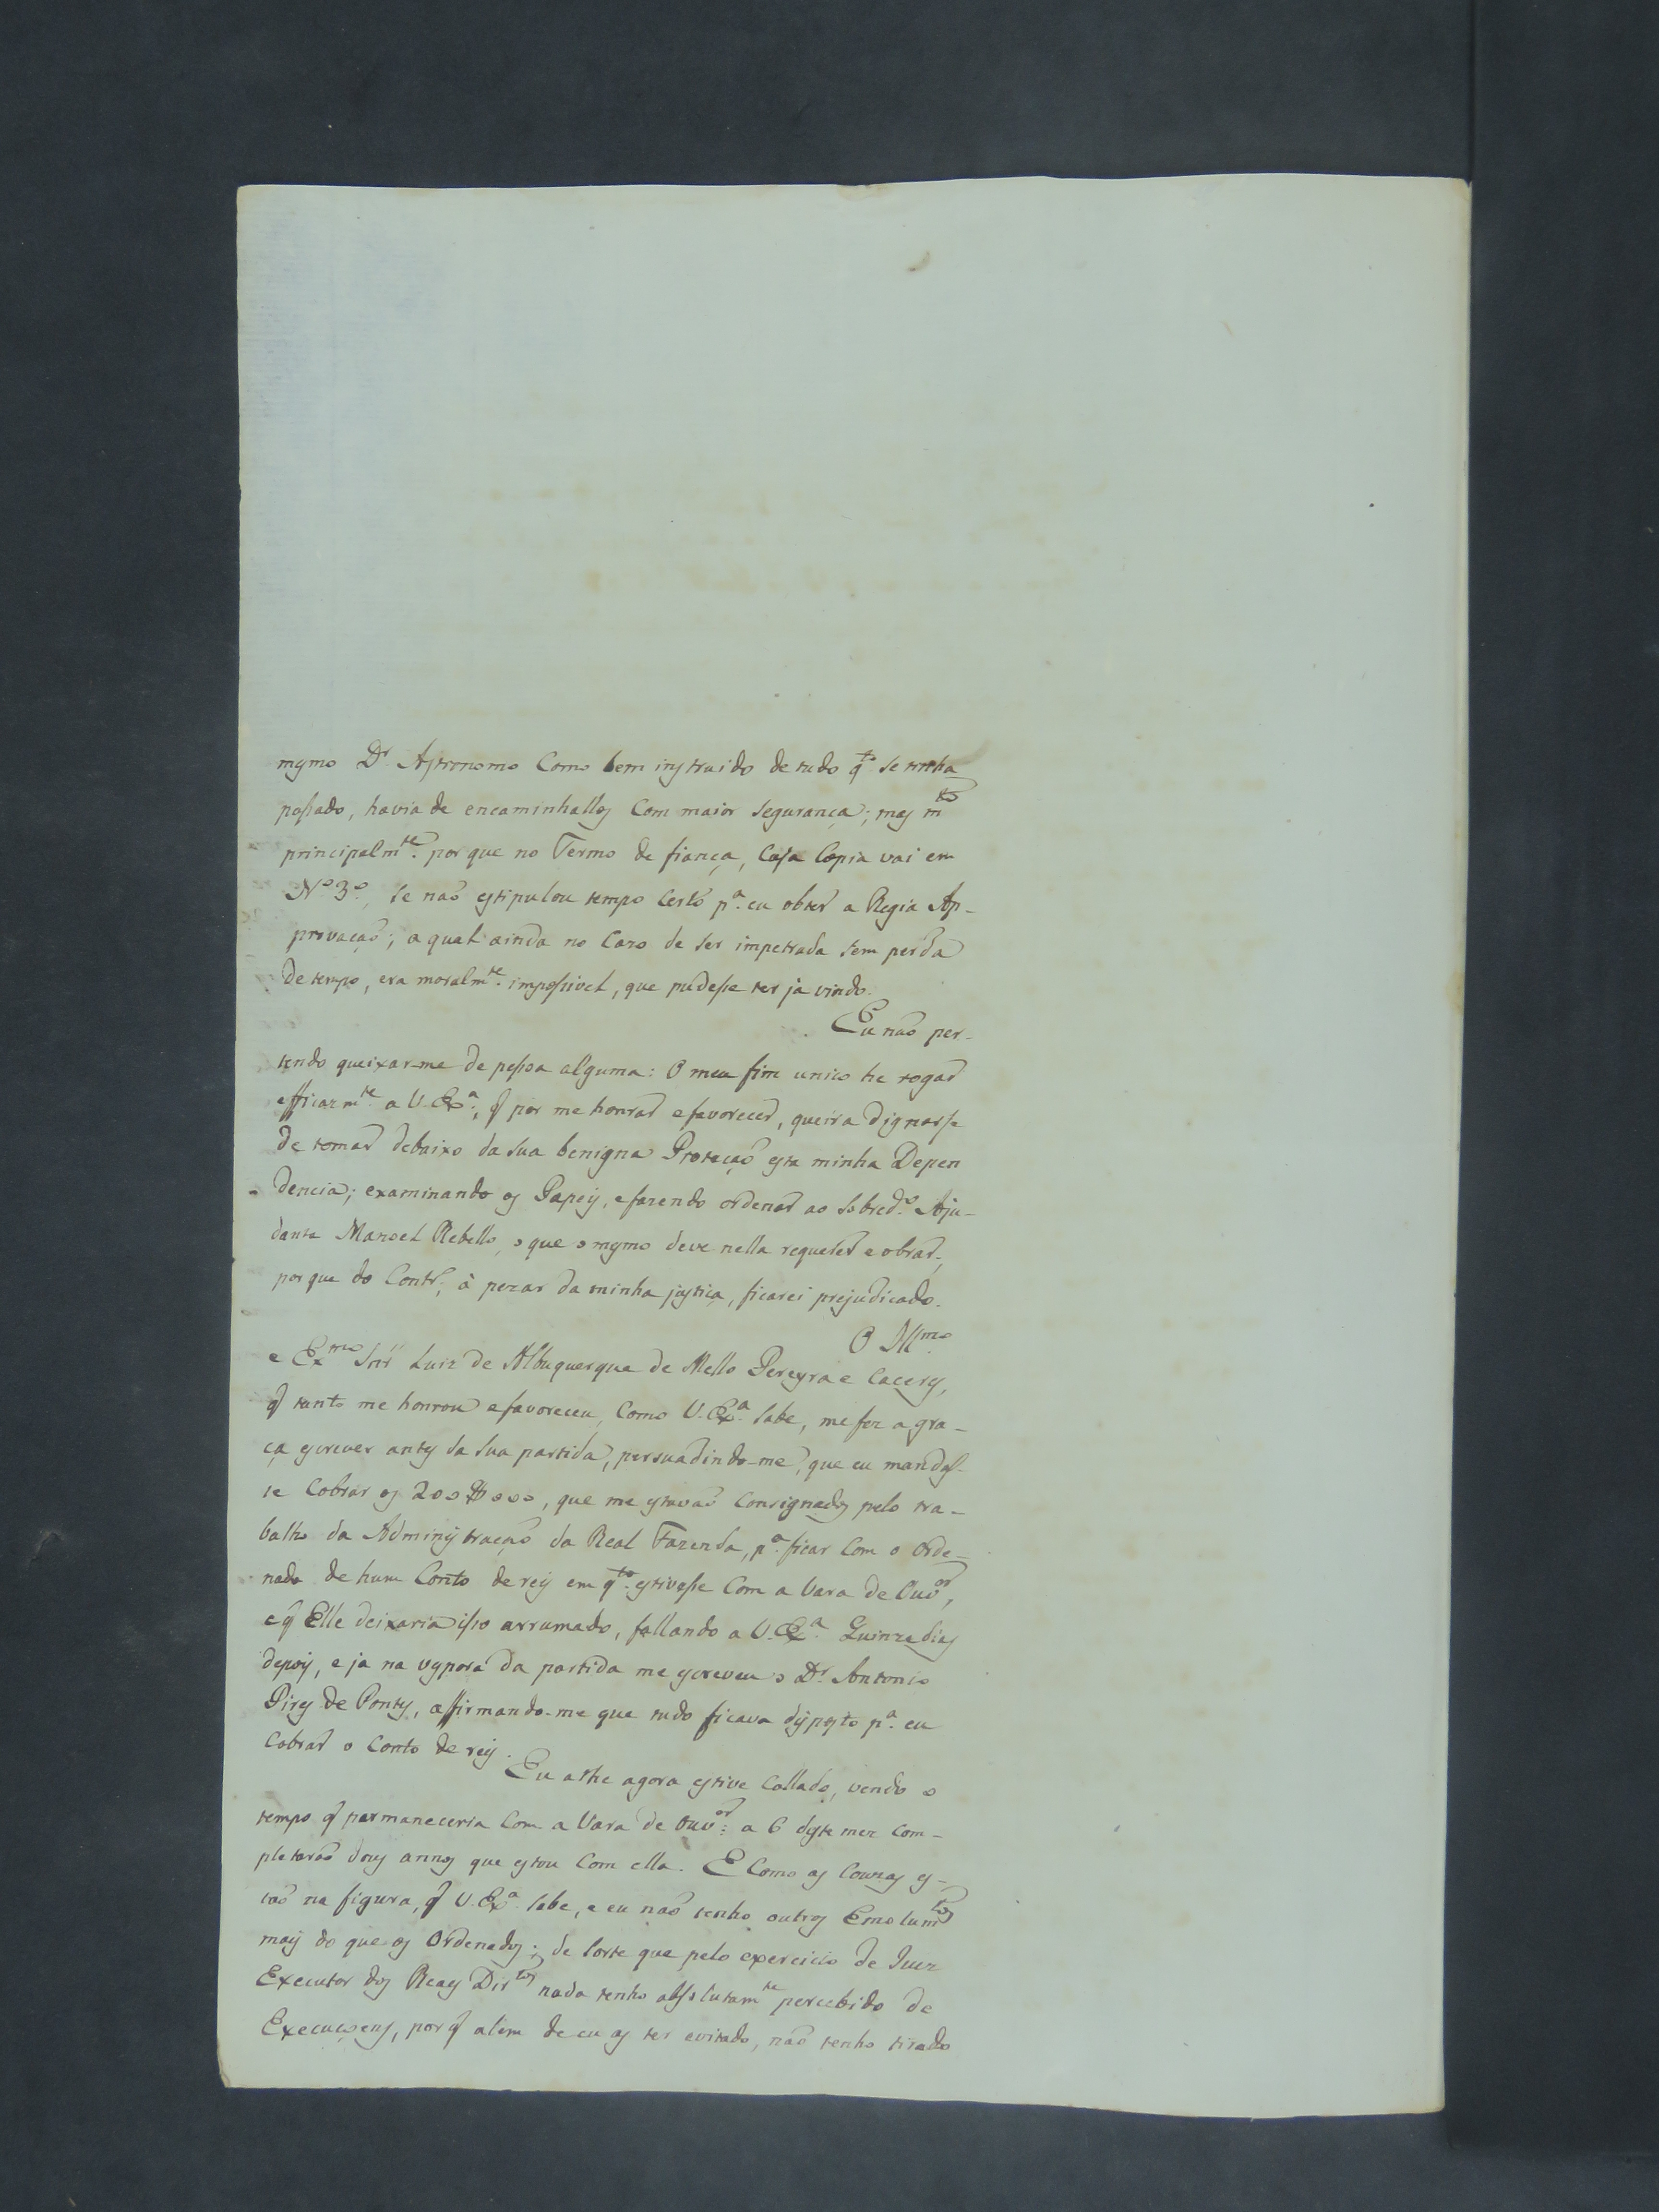 mesmo Dr. Astronomo Como bem instruido de tudo qto. se tinha
passado, havia de encaminhallos Com maior segurança; mas mto
principalmte. por que no Termo de fiança, Cuja Copia vai em
No. 3o., se naõ estipulou tempo Certo pa. eu obter a Regia Ap-
provaçaõ; a qual ainda no Cazo de ser impetrada sem perda
de tempo, era moralmte. impossivel, que pudesse ter ja vindo.
Eu naõ per-
tendo queixar-me de pessoa alguma: O meu fim unico he rogar
efficazmte. a V. Exa., q̃ por me honrar e favorecer, queira dignarse
de tomar debaixo da sua benigna Proteçaõ esta minha Depen
dencia; examinando os Papeis, e fazendo ordenar ao sobredo. Aju-
dante Manoel Rebello, o que o mesmo deve nella requerer e obrar;
por que do Contro., à pezar da minha justiça, ficarei prejudicado.
O Illmo.
e Exmo. Snr. Luiz de Albuquerque de Mello Pereyra e Caceres,
q̃ tanto me honrou e favoreceu, Como V. Exa. sabe, me fez a gra-
ça escrever antes da sua partida, persuadindo-me, que eu mandas-
se Cobrar os 200$000, que me estavaõ Consignados pelo tra-
balho da Administraçaõ da Real Fazenda, pa. ficar Com o Orde-
nado de hum Conto de reis em qto. estivesse Com a Vara de Ouvor.,
e q̃ Elle deixaria isso arrumado, fallando a V. Exa. Quinze dias
depois, e ja na vespora da partida me escreveu o Dr. Antonio
Pires de Pontes, affirmando-me que tudo ficava disposto pa. eu
Cobrar o Conto de reis.
Eu athe agora estive Callado, vendo o
tempo q̃ permaneceria Com a Vara de Ouvor.: a 6 deste mez Com-
pletaraõ dous annos que estou Com ella. E Como as Couzas es-
taõ na figura, q̃ V. Exa. sabe, e eu naõ tenho outros Emolumtos
mais do que os Ordenados; de sorte que pelo exercicio de Juiz
Executor dos Reaes Dirtos nada tenho absolutamte percebido de
Execuçoens, por q̃ alem de eu as ter evitado, naõ tenho tirado